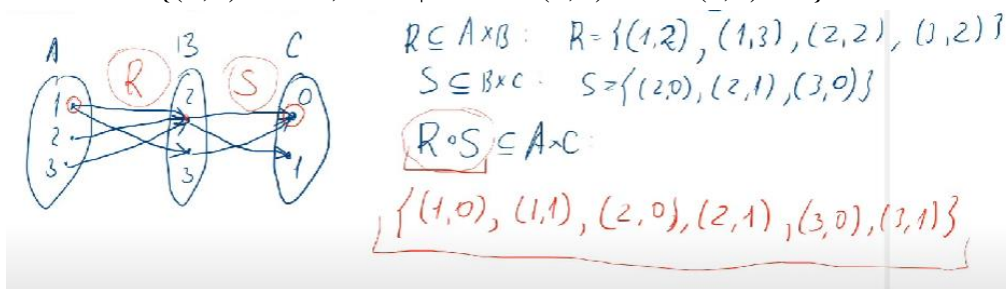 A B C
R S
1 2 0
2
3 3 1
R ⊆ A×B : R = {(1,2), (1,3), (2,2), (3,2)}
S ⊆ B×C. S = {(2,0), (2,1), (3,0)}
R∘S ⊆ A×C:
{(1,0), (1,1), (2,0), (2,1), (3,0), (3,1)}